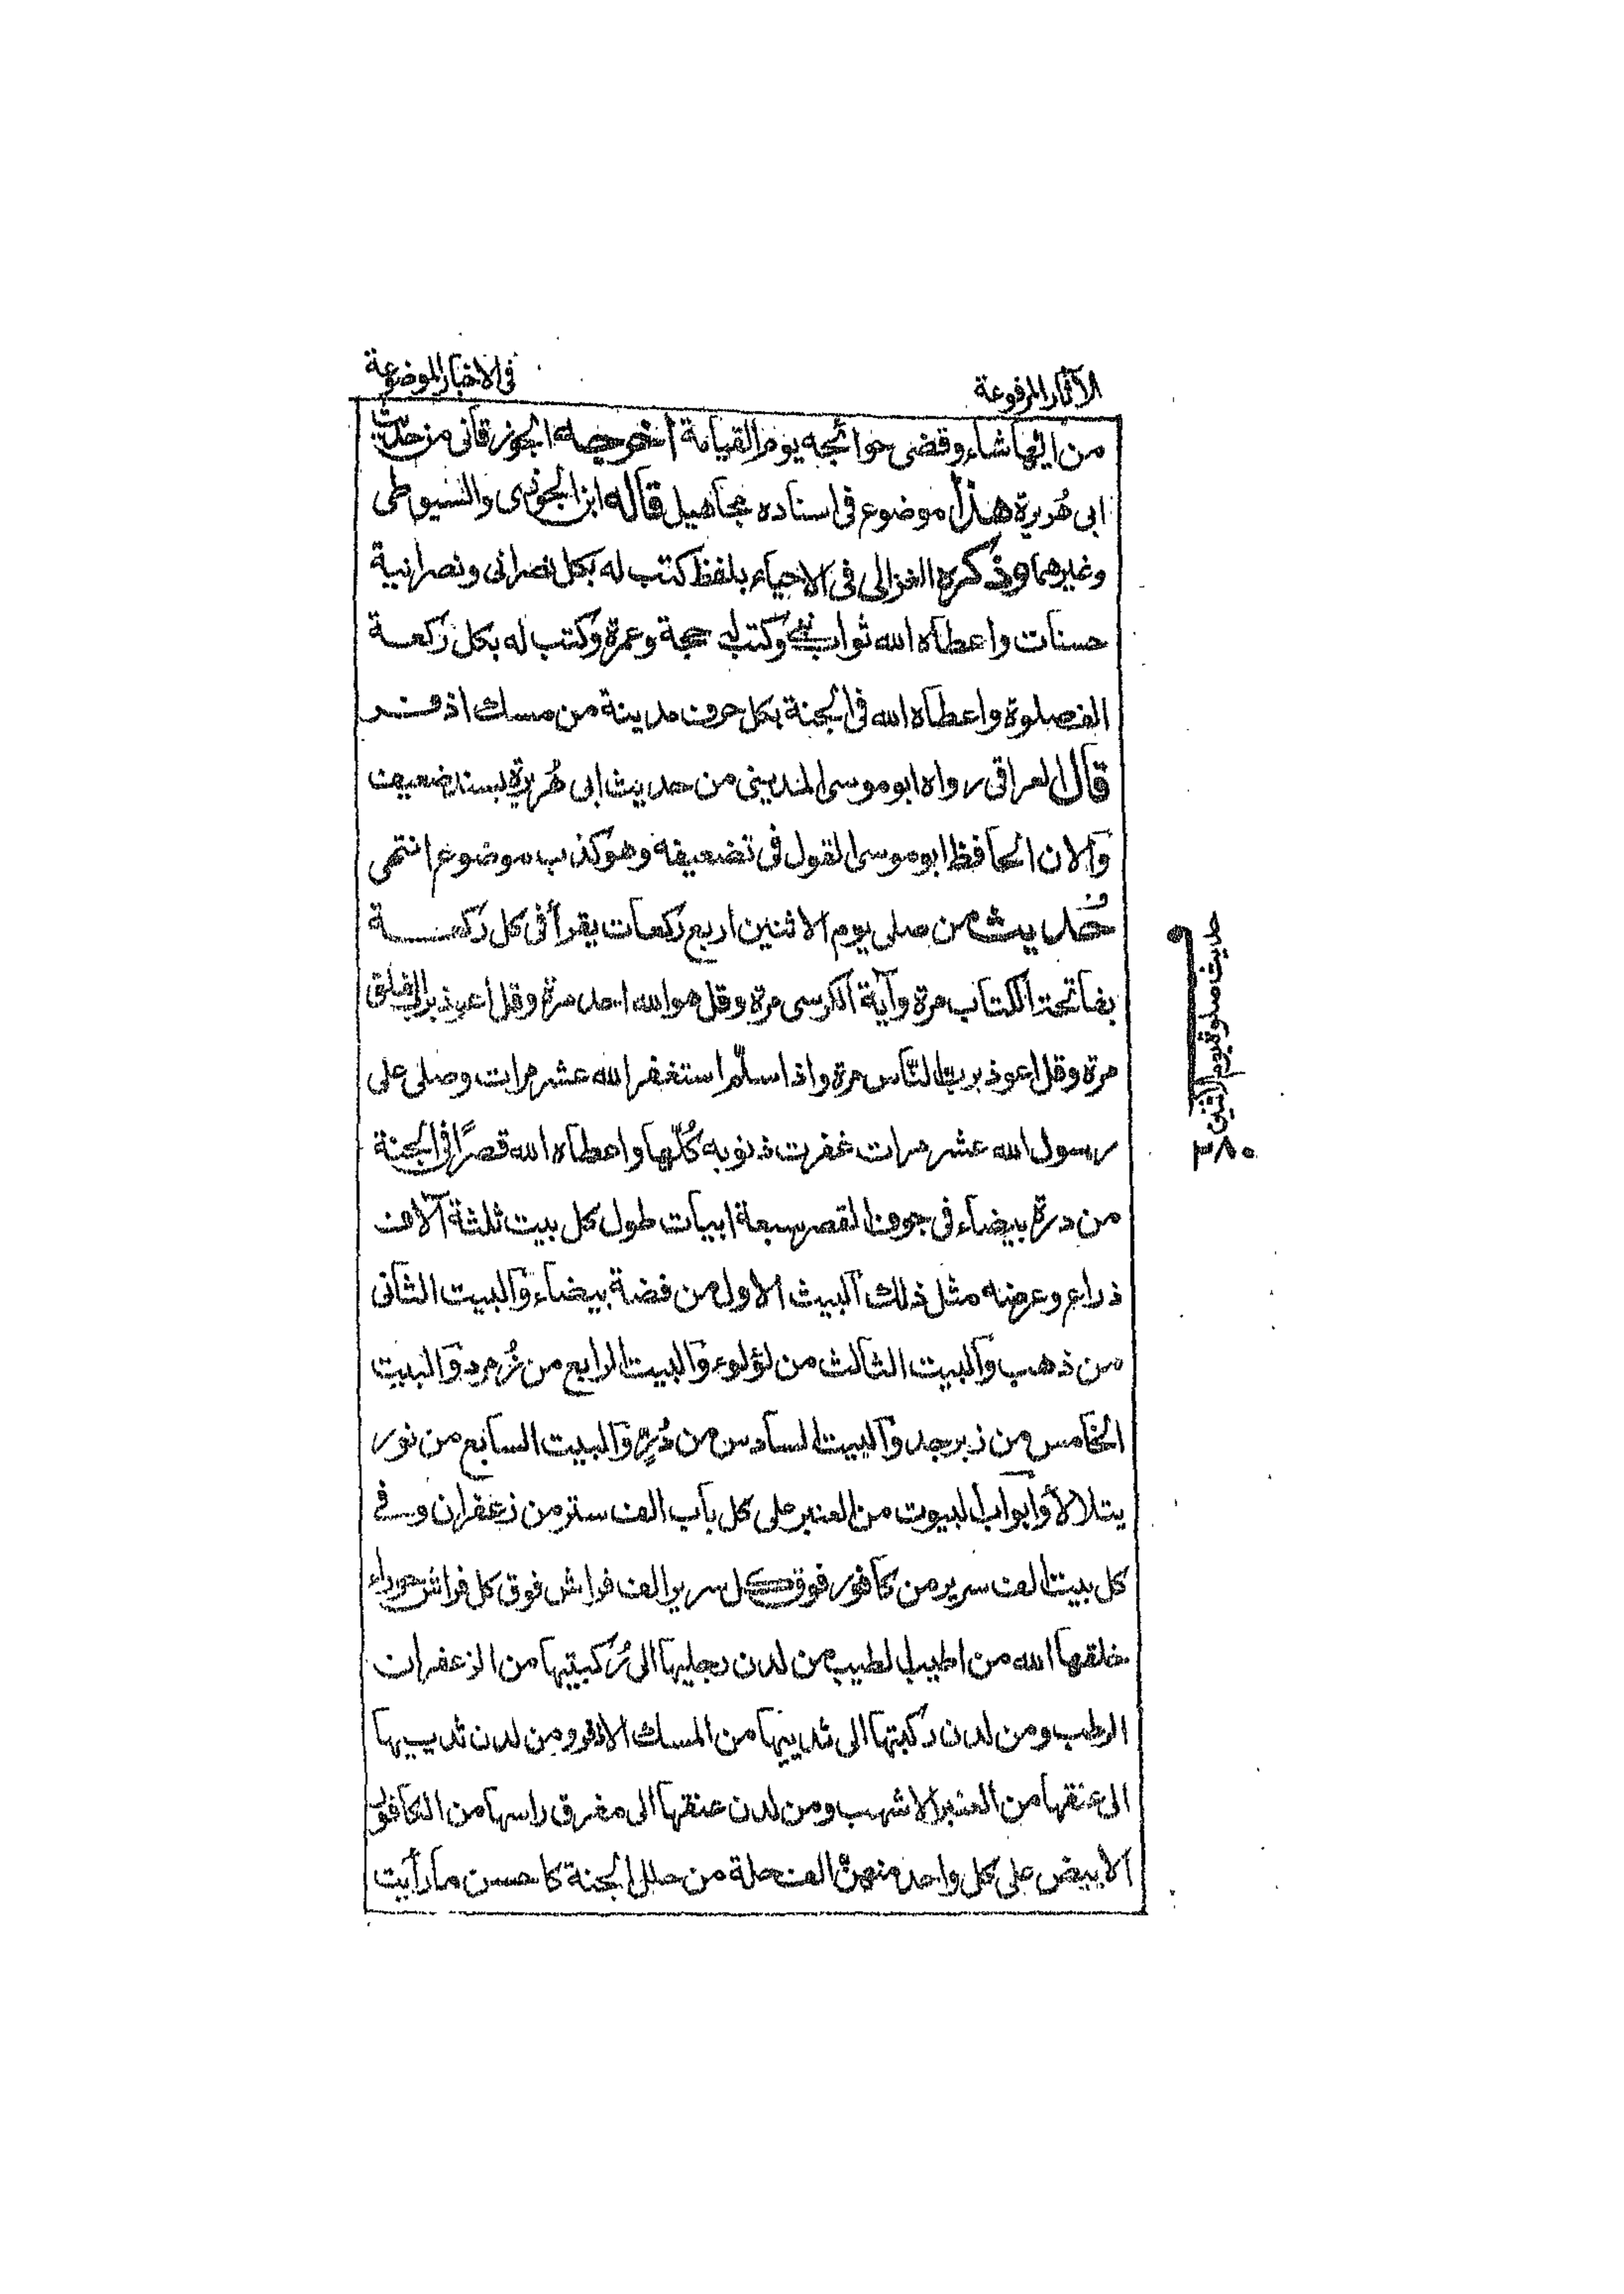 الآثار المرفوعة
فى الاخبار الموضوعة
من ايها شاء وقضى حوائجه يوم القيامة اخرجه الجوزقانى من حديث
ابى هُريرة هذا موضوع فى اسناده مجاهيل قاله ابن الجوزى والسيوطى
وغيرهما وذكره الغزالى فى الاحياء بلفظ كتب له بكل نصرانى ونصرانية
حسنات واعطاه الله ثواب نبى وكتب له حجة وعمرة وكتب له بكل ركعة
الف صلوة واعطاه الله فى الجنة بكل حرف مدينة من مسك اذفر
قال العراقى رواه ابو موسى المدينى من حديث ابى هُريرة بسند ضعيف
وآلان الحافظ ابو موسى القول فى تضعيفه وهو كذب موضوع انتهى
حُديث من صلى يوم الاثنين اربع ركعات يقرأ فى كل ركعة
بفاتحة الكتاب مرة وآية الكرسى مرة وقل هو الله احد مرة وقل اعوذ برب الفلق
مرة وقل اعوذ برب النّاس مرة واذا سلّم استغفر الله عشر مرات وصلى على
رسول الله عشر مرات غفرت ذنوبه كُلّها واعطاه الله قصرًا فى الجنة
من درة بيضاء فى جوف القصر سبعة ابيات طول كل بيت ثلثة آلاف
ذراع وعرضه مثل ذلك آلبيت الاول من فضة بيضاء وآلبيت الثانى
من ذهب وآلبيت الثالث من لؤلوء وآلبيت الرابع من زُمرد وآلبيت
الخامس من زبرجد وآلبيت السادس من دُرٍّ وآلبيت السابع من نور
يتلالأ وابواب البيوت من العنبر على كل باب الف ستر من زعفران وفى
كل بيت الف سرير من كافور فوق كل سرير الف فراش فوق كل فراش حوراء
خلقها الله من اطيب الطيب من لدن رجليها الى رُكبتيها من الزعفران
الرطب ومن لدن ركبتها الى ثدييها من المسك الاذفر ومن لدن ثدييها
الى عنقها من العنبر الاشهب ومن لدن عنقها الى مفرق راسها من الكافور
الابيض على كل واحد منهنّ الف حلة من حلل الجنة كاحسن ما رأيت
حديث صلوة يوم الاثنين
٣٨٠